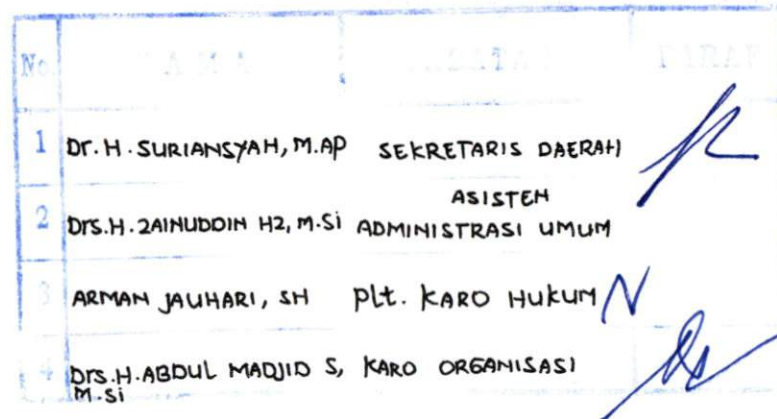 No. NAMA JABATAN PARAF
1 Dr. H. SURIANSYAH, M.AP SEKRETARIS DAERAH
2 Drs. H. ZAINUDDIN HZ, M.Si ASISTEN ADMINISTRASI UMUM
3 ARMAN JAUHARI, SH Plt. KARO HUKUM
4 Drs. H. ABDUL MADJID S, KARO ORGANISASI
M.Si